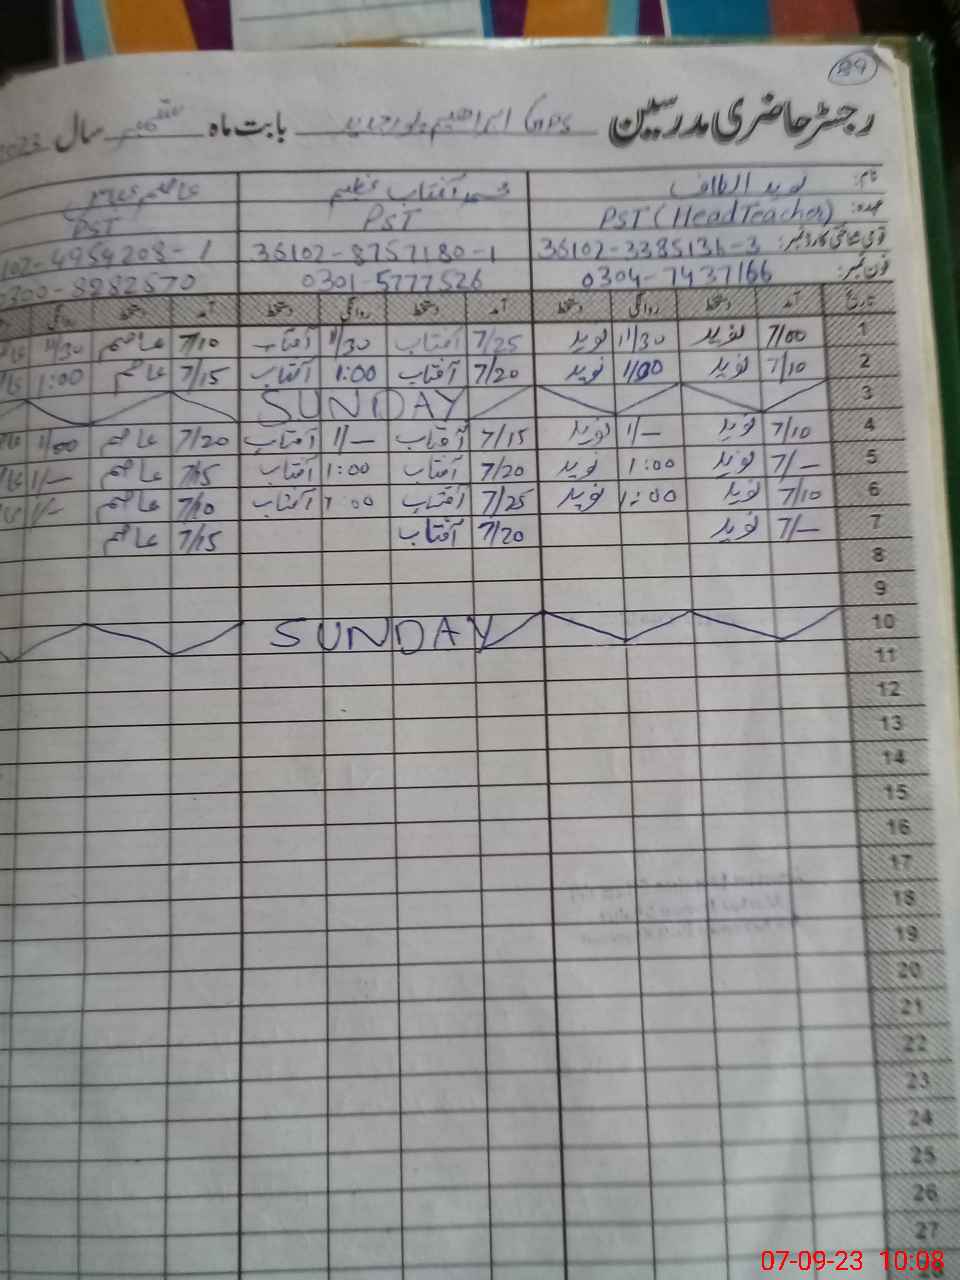 89
رجسٹر حاضری مدرسین GPS ابراھیم پور جدید بابت ماہ ستمبر سال 2023
نام: نوید الطاف محمد آفتاب عظیم
عہدہ: PST (Head Teacher) PST PST
قومی شناختی کارڈ نمبر: 36102-3385131-3 36102-8757180-1 102-4954208-1
فون نمبر: 0304-7437166 0301-5777526 0300-8282570
تاریخ آمد دستخط روانگی دستخط آمد دستخط روانگی دستخط آمد دستخط روانگی
1 7/00 نوید 11/30 نوید 7/25 آفتاب 11/30 آفتاب 7/10 عاصم 11/30
2 7/10 نوید 1/00 نوید 7/20 آفتاب 1:00 آفتاب 7/15 عاصم 1:00
3 SUNDAY
4 7/10 نوید 1/— نوید 7/15 آفتاب 1/— آفتاب 7/20 عاصم 1/00
5 7/— نوید 1:00 نوید 7/20 آفتاب 1:00 آفتاب 7/15 عاصم 1/—
6 7/10 نوید 1:00 نوید 7/25 آفتاب 1:00 آفتاب 7/10 عاصم 1/—
7 7/— نوید 7/20 آفتاب 7/15 عاصم
8
9
10 SUNDAY
11
12
13
14
15
16
17
18
19
20
21
22
23
24
25
26
27
07-09-23 10:08